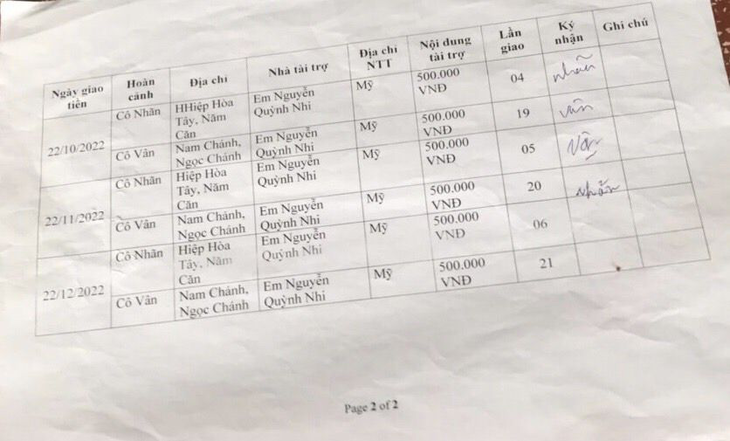 Ngày giao tiền | Hoàn cảnh | Địa chỉ | Nhà tài trợ | Địa chỉ NTT | Nội dung tài trợ | Lần giao | Ký nhận | Ghi chú
22/10/2022 | Cô Nhãn | HHiệp Hòa Tây, Năm Căn | Em Nguyễn Quỳnh Nhi | Mỹ | 500.000 VNĐ | 04 | nhãn
Cô Vân | Nam Chánh, Ngọc Chánh | Em Nguyễn Quỳnh Nhi | Mỹ | 500.000 VNĐ | 19 | vân
22/11/2022 | Cô Nhãn | Hiệp Hòa Tây, Năm Căn | Em Nguyễn Quỳnh Nhi | Mỹ | 500.000 VNĐ | 05 | Vân
Cô Vân | Nam Chánh, Ngọc Chánh | Em Nguyễn Quỳnh Nhi | Mỹ | 500.000 VNĐ | 20 | nhãn
22/12/2022 | Cô Nhãn | Hiệp Hòa Tây, Năm Căn | Em Nguyễn Quỳnh Nhi | Mỹ | 500.000 VNĐ | 06
Cô Vân | Nam Chánh, Ngọc Chánh | Em Nguyễn Quỳnh Nhi | Mỹ | 500.000 VNĐ | 21
Page 2 of 2